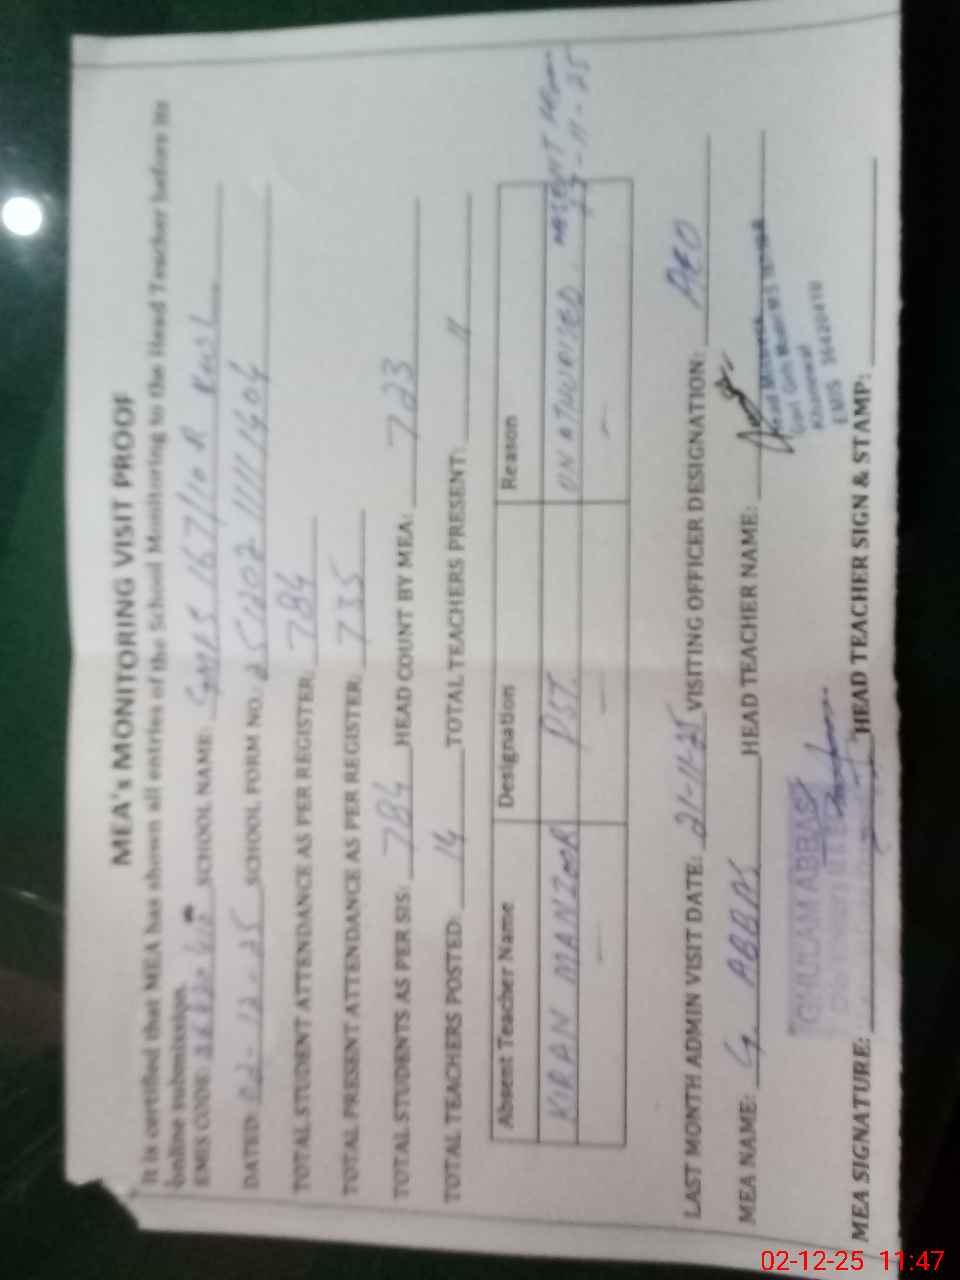 MEA's MONITORING VISIT PROOF
It is certified that MEA has shown all entries of the School Monitoring to the Head Teacher before its
online submission.
EMIS CODE: SCHOOL NAME: 167/10 R
DATED: 02-12-25 SCHOOL FORM NO:
TOTAL STUDENT ATTENDANCE AS PER REGISTER: 784
TOTAL PRESENT ATTENDANCE AS PER REGISTER: 735
TOTAL STUDENTS AS PER SIS: 784 HEAD COUNT BY MEA: 723
TOTAL TEACHERS POSTED: 14 TOTAL TEACHERS PRESENT:
Absent Teacher Name Designation Reason
KIRAN MANZOOR PST. ABSENT
17-11-25
LAST MONTH ADMIN VISIT DATE: 21-11-25 VISITING OFFICER DESIGNATION: AEO
MEA NAME: G. ABBAS HEAD TEACHER NAME:
Khanewal
EMIS 36420410
GHULAM ABBAS
MEA SIGNATURE: HEAD TEACHER SIGN & STAMP:
02-12-25 11:47